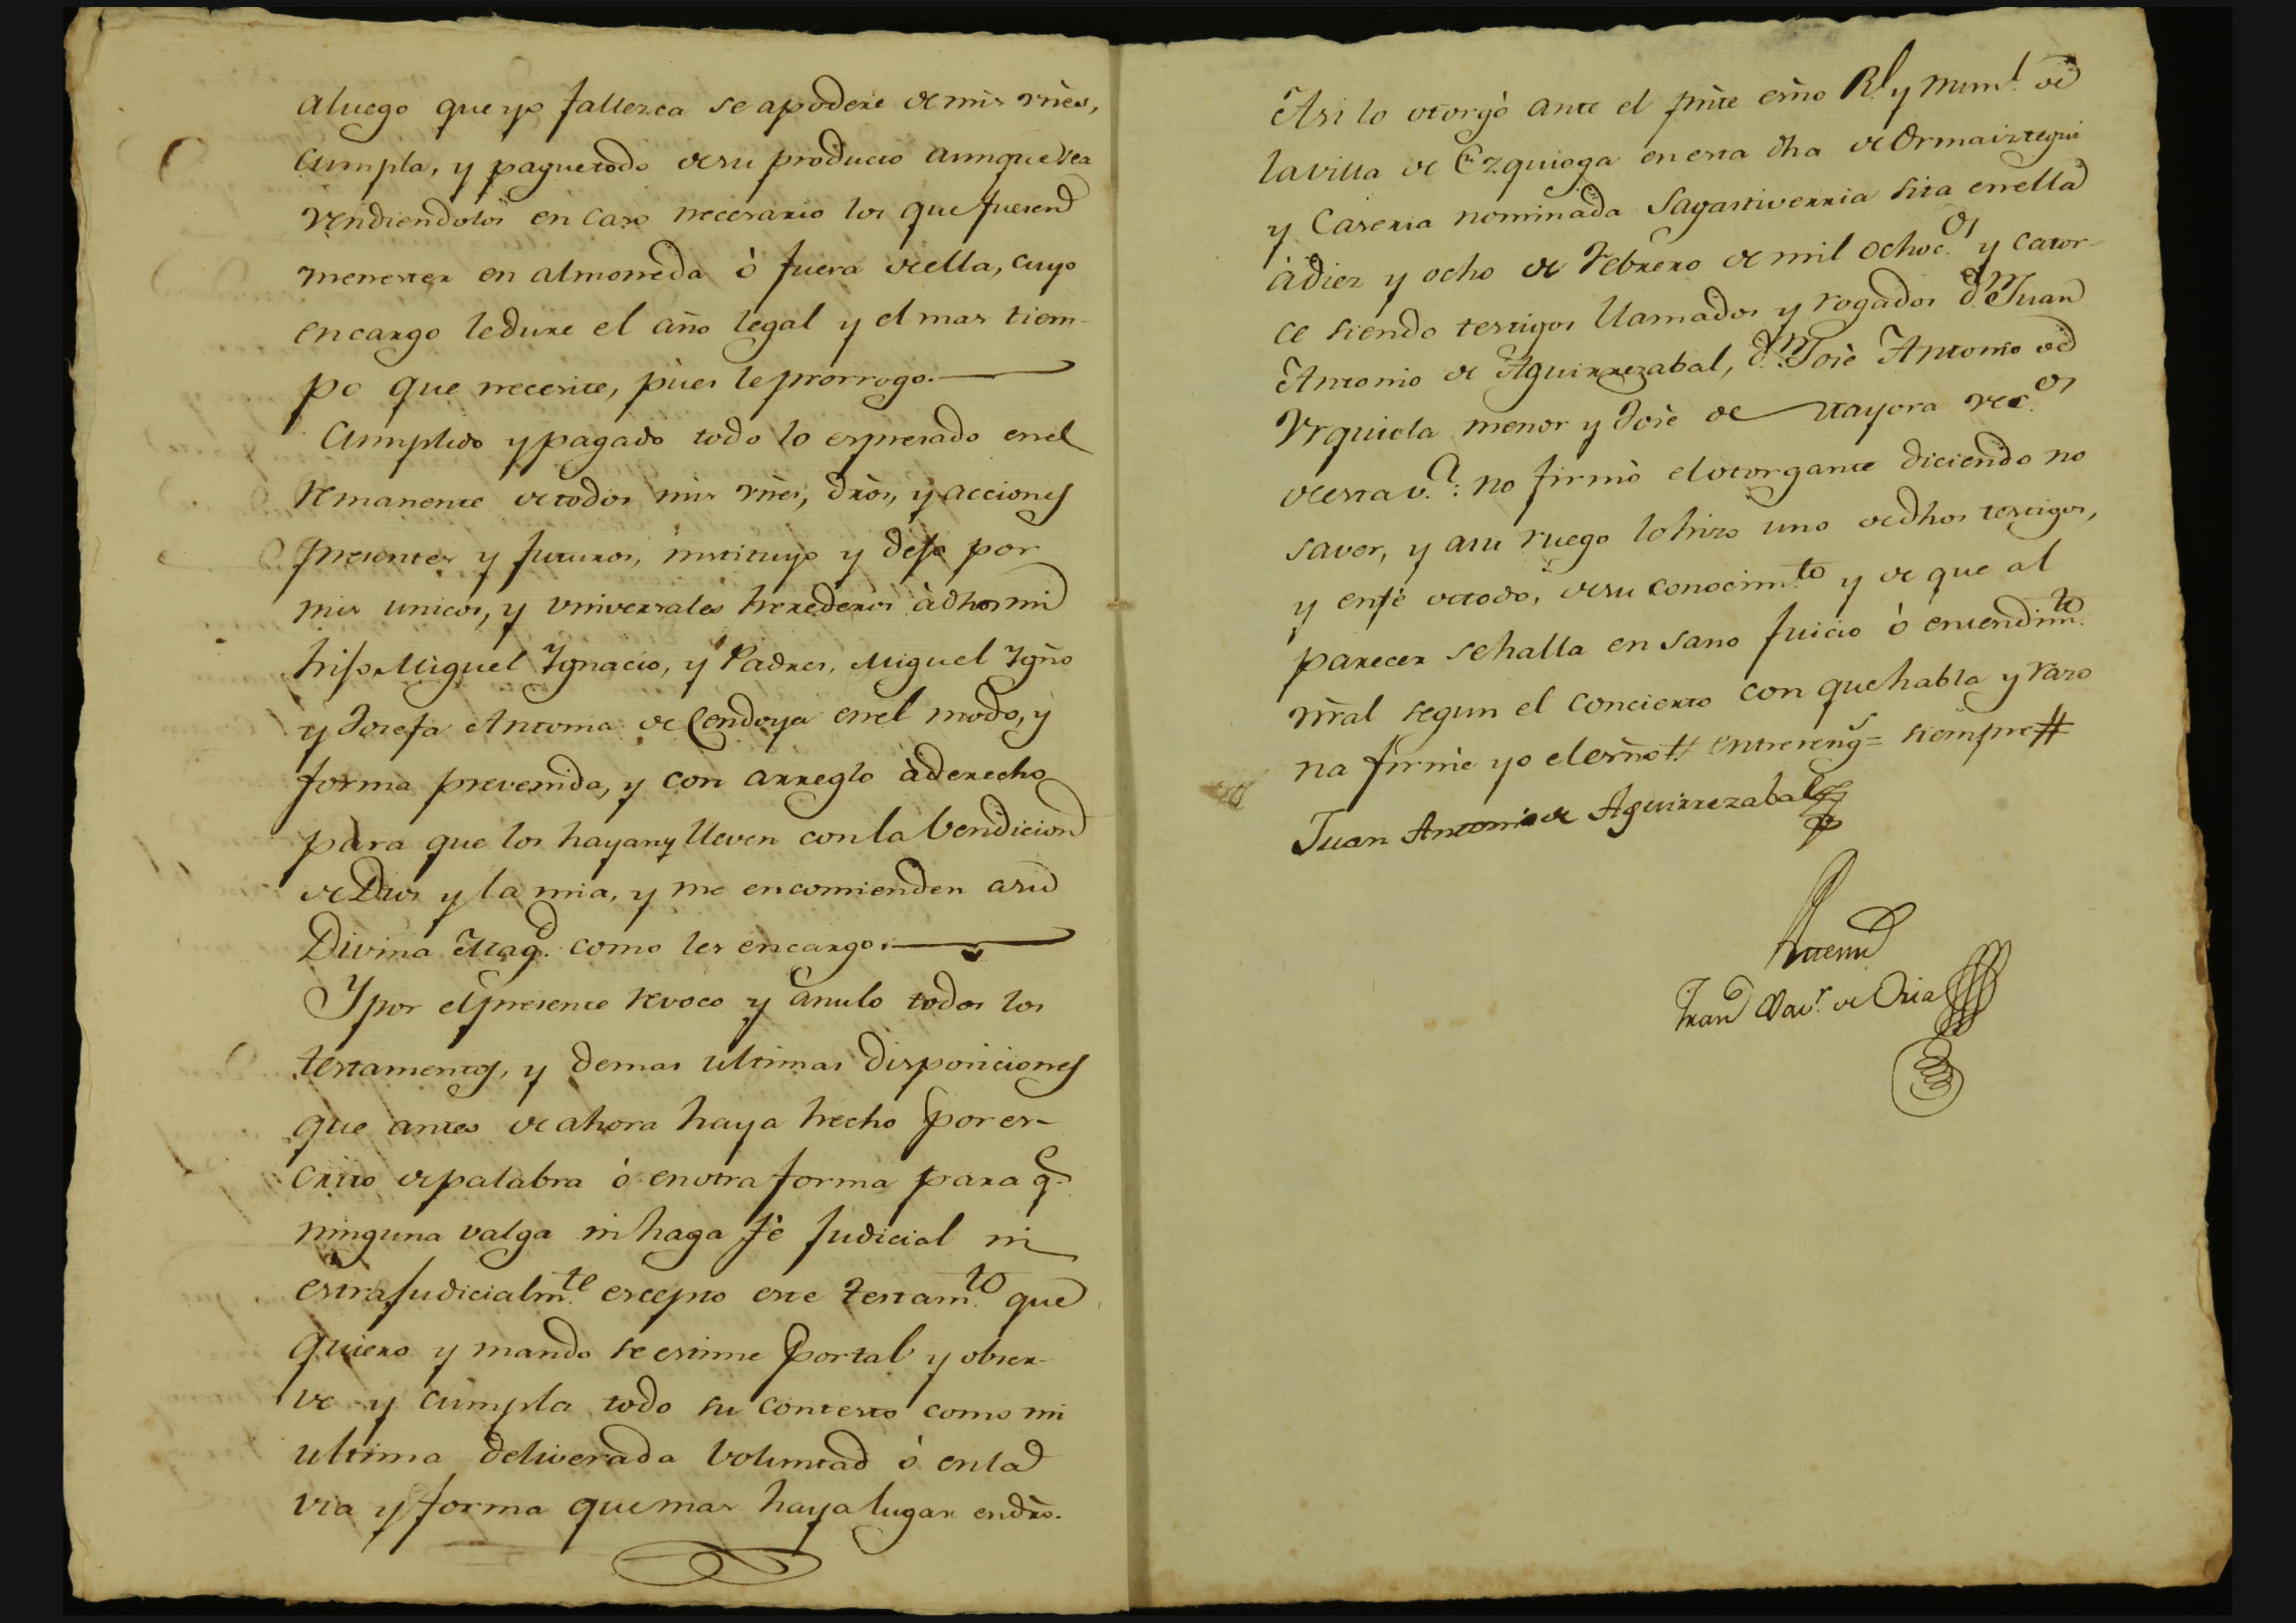 aluego que yo fallezca se apodere de mis vñes,
Cumpla, y pague todo de su producto aunque sea
vendiendolos en caso necesario los que fueren
menester en almoneda ò fuera de ella, cuyo
encargo le dure el año legal y el mas tiem-
po que necesite, pues le prorrogo.
Cumplido y pagado todo lo espresado en el
remanente de todos mis vñes, dròs, y acciones
presentes y futuros, instituyo y dejo por
mis unicos, y vniversales herederos à dhos mi
hijo Miguel Ygnacio, y Padres, Miguel Ygño
y Josefa Antonia de Cendoya en el modo, y
forma prevenida, y con arreglo à derecho
para que los hayan y lleven con la bendicion
de Dios y la mia, y me encomienden a su
Divina Mag.d como les encargo.
Y por el presente revoco y anulo todos los
testamentos, y demas ultimas disposiciones
que antes de ahora haya hecho por es-
crito de palabra ò en otra forma para q.e
ninguna valga ni haga fè judicial ni
estrajudicialm.te escepto este testam.to que
quiero y mando se estime por tal y obser-
ve y cumpla todo su contesto como mi
ultima deliverada voluntad ò en la
via y forma que mas haya lugar en dro.
Asi lo otorgò ante el pñte esño R.l y Num.l de
la villa de Ezquioga en esta dha de Ormaiztegui
y Caseria nominada Sagastiverria sita en ella
à diez y ocho de Febrero de mil ochoc.os y cator-
ce siendo testigos llamados y rogados d.n Juan
Antonio de Aguirrezabal, d.n Josè Antonio de
Urquiola menor y Josè de Mayora vec.os
de esta v.a: no firmò el otorgante diciendo no
saver, y a su ruego lo hizo uno de dhos testigos,
y en fè de todo, de su conocim.to y de que al
parecer se halla en sano juicio ò entendim.to
ñral segun el concierto con que habla y razo
na firmè yo el esño tt entrereng.s = siempre #
Juan Antonio de Aguirrezabal
Antemi
Fran.co Xav.r de Oria